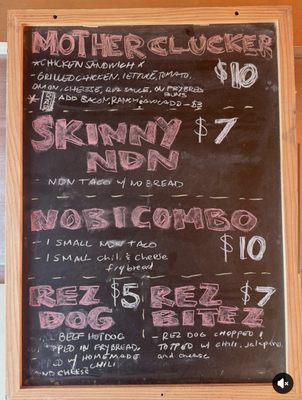 MOTHER CLUCKER
*CHICKEN SANDWICH*
- GRILLED CHICKEN, LETTUCE, TOMATO,
ONION, CHEESE, SAUCE ON FRYBREAD
BUNS
$10
* ADD BACON, RANCH ADD - $3
SKINNY
NDN
$7
- NDN TACO w/ NO BREAD
NOBICOMBO
- 1 SMALL NDN TACO
- 1 SMALL Chili & cheese
frybread
$10
REZ
DOG
$5
BEEF HOTDOG
PPED IN FRYBREAD
PED w/ HOMEMADE
CHILI
ND CHEESE
REZ
BITEZ
$7
- REZ DOG CHOPPED &
TOPPED w/ CHILI, jalapeno,
and cheese